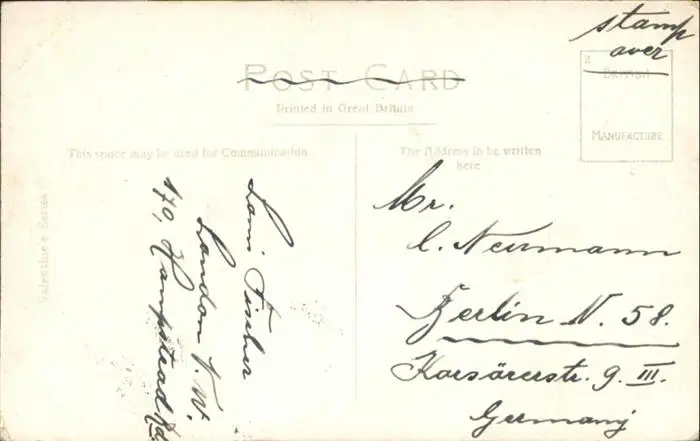 stamp
over
POST CARD
Printed in Great Britain
BRITISH
MANUFACTURE
This space may be used for Communication
The Address to be written
here
Valentine's Series
Fischer
London N. W.
170, Hampstead Rd.
Mr.
C. Neumann
Berlin N. 58.
Korsörerstr. 9. III.
Germany